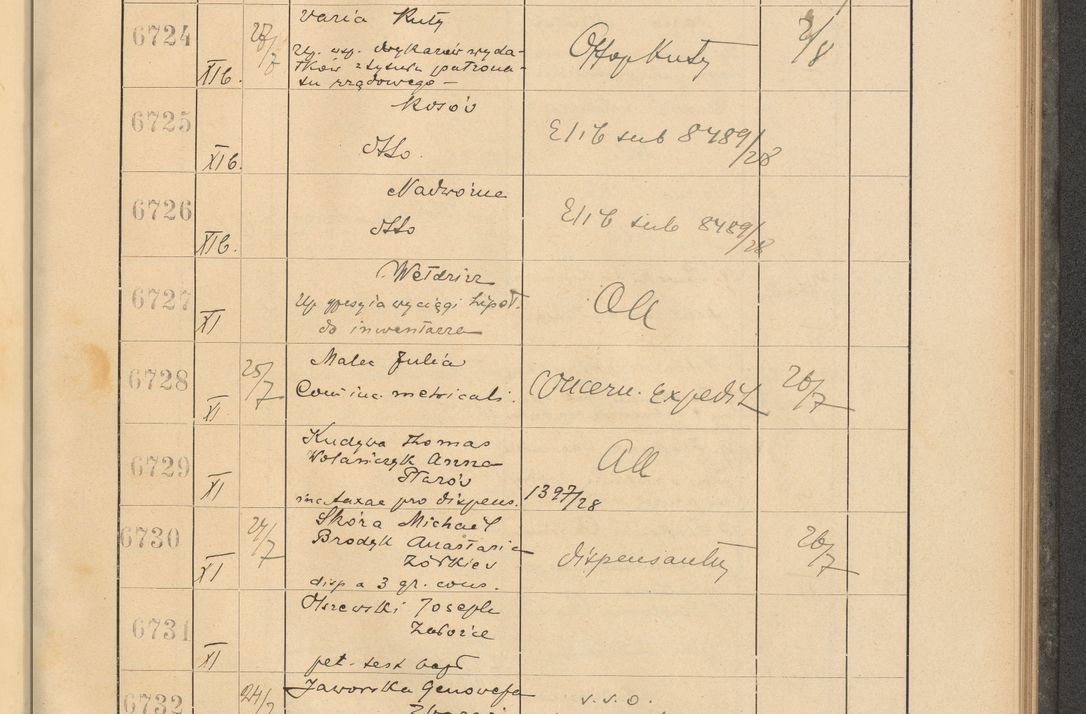 6724 XIb. 27/7 varia Kuty 2/8
Up. wsp. wykazów wyda-
tków z tytułu patrona-
tu rządowego —
Kuty
6725 XIb. Kosów
dtto. E/1b sub 8489/28
6726 XIb. Nadwórna
dtto E/1b sub 8489/28
6727 XI Wełdzirz
Up. wyciągi hipot.
do inwentarza
6728 XI 25/7 Malec Julia
metricali. Concern. Expedit 26/7
6729 XI Kudyba Thomas
Wolańczyk Anna
taxae pro dispens. 1397/28
6730 XI 24/7 Skóra Michael
Brodyk Anastasia
Żółkiew
disp a 3 gr. cons. dispensantur 26/7
6731 XI Olszewski Joseph
pet. test bapt
6732 24/7 Jaworska Genowefa
v.s.o.